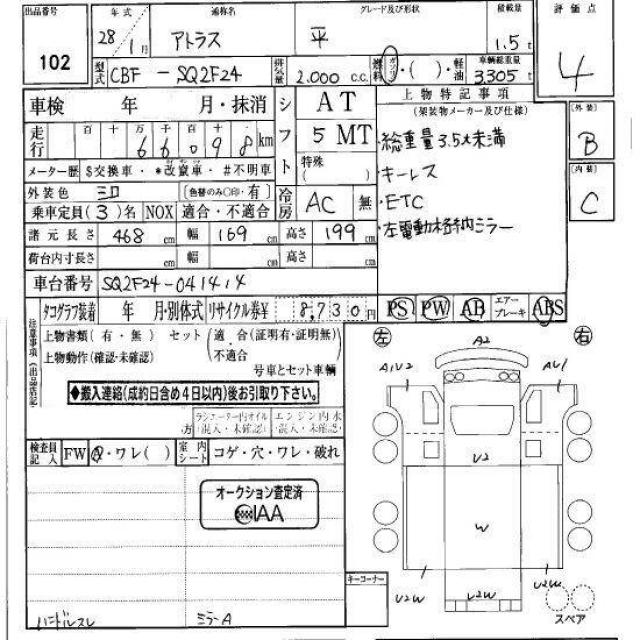 出品番号 年式 通称名 グレード及び形状 積載量 評価点
102 28/1月 アトラス 平 1.5t 4
型式 CBF-SQ2F24 排気量 2.000 c.c. 燃料 ガソリン・( )・軽油 車輌総重量 3305t
車検 年 月・抹消 シフト AT 上物特記事項
(架装物メーカー及び仕様) [外装]
走行 百 十 万 千 百 十 5MT B
6 6 0 9 8 km 総重量3.5t未満
メーター歴 $交換車・*改竄車・#不明車 特殊( ) ・キーレス [内装]
外装色 シロ [色替のみ〇印・有] 冷房 AC 無 ・ETC C
乗車定員(3)名 NOX 適合・不適合 ・左電動格納ミラー
諸元長さ 468cm 幅 169cm 高さ 199cm
荷台内寸長さ cm 幅 cm 高さ cm
車台番号 SQ2F24-041414
タコグラフ装着 年 月・別体式 リサイクル券¥ 8,730円 PS PW AB エアーブレーキ ABS
注意事項(出品店記記)
上物書類(有・無) セット(適合(証明有・証明無) 左 A2 右
上物動作(確認・未確認) 不適合 A1V2 AV1
号車とセット車輌
◆搬入連絡(成約日含め4日以内)後お引取り下さい。
ラジエーター内オイル エンジン内水
方(混入・未確認) (混入・未確認)
検査員記入 FW Q・ワレ( ) 室内シート コゲ・穴・ワレ・破れ V2
オークション査定済
IAA W
キーコーナー
V2W V2W V2W
ハンドルスレ ミラーA スペア